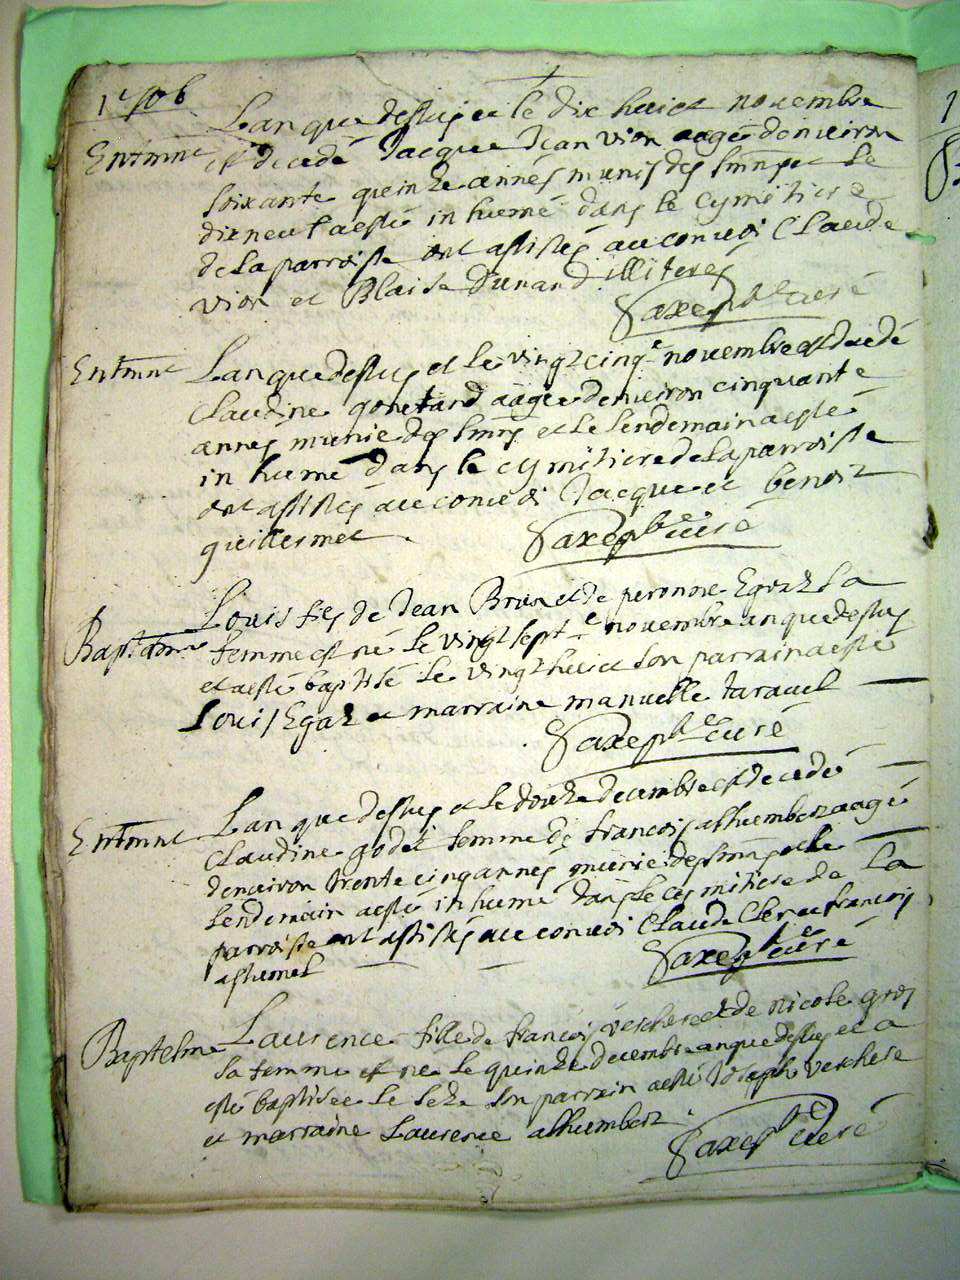 1706
Lan que dessus et le dix huict novembre
Entrmnt est decedé Jacque Jean vion aagé denviron
soixante quinze années munis des smns et le
dixneuf a esté inhumé dans le cymitiere
de la parroisse ont assistés au convoi Claude
vion et Blaise Dunand illiteres
Saxe pbte curé
Entrmnt Lan que dessus et le vingtcinqe novembre est decedé
Claudine gonetand aagée denviron cinquante
annés munie des smns et le lendemain a esté
inhumé dans le cymitiere de la parroisse
ont assistés au convoi Jacque et benoit
guillermet
Saxe pbre curé
Louis fils de Jean Brun et de peronne Egraz sa
Baptême femme est né le vingt septe novembre an que dessus
et a esté baptisé le vingt huict son parrain a esté
Louis Egraz et marraine manuelle taravel
Saxe pbte curé
Lan que dessus et le douze decembre est decedé
Entrmnt Claudine godet femme de francois alhumbert aagé
denviron trente cinq annés munie des smns et le
lendemain a esté inhumé dans le cymitiere de La
parroisse ont assistés au convoi Claude Clerc et francois
Saxe pbte curé
Baptesme Laurence fille de francois verchere et de nicole gros
sa femme est né le quinze decembre an que dessus et a
esté baptisée le seze son parrain a esté Joseph verchere
et marraine Laurence alhumbert
Saxe pbte curé